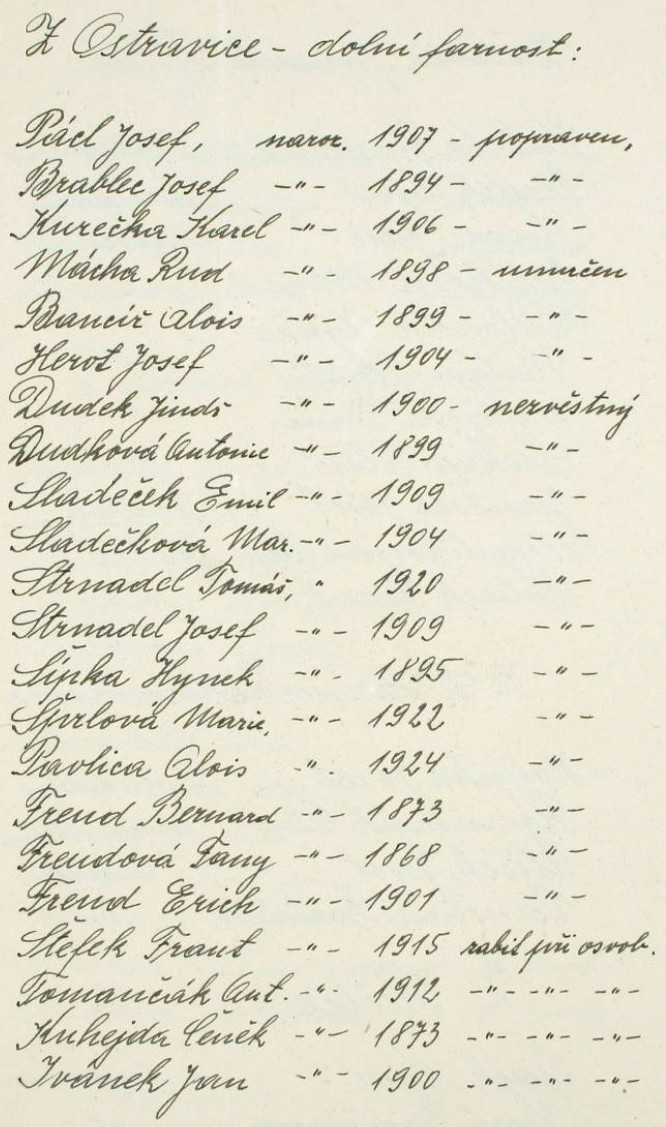 Z Ostravice - dolní farnost:
Pácl Josef, naroz. 1907 - popraven,
Brablec Josef -"- 1894 - -"-
Kurečka Karel -"- 1906 - -"-
Mácha Rud -"- 1898 - umučen
Bančíř Alois -"- 1899 - -"-
Herot Josef -"- 1904 - -"-
Dudek Jindř -"- 1900 - nezvěstný
Dudková Antonie -"- 1899 -"-
Sladeček Emil -"- 1909 -"-
Sladečková Mar. -"- 1904 -"-
Strnadel Tomáš, " 1920 -"-
Strnadel Josef -"- 1909 -"-
Šipka Hynek -"- 1895 -"-
Marie, -"- 1922 -"-
Pavlica Alois -"- 1924 -"-
Freud Bernard -"- 1873 -"-
Freudová Fany -"- 1868 -"-
Freud Erich -"- 1901 -"-
Štefek Frant -"- 1915 zabit při osvob.
Tomančák Ant. -"- 1912 -"- -"- -"-
Kuhejda Čeněk -"- 1873 -"- -"- -"-
Ivánek Jan -"- 1900 -"- -"- -"-